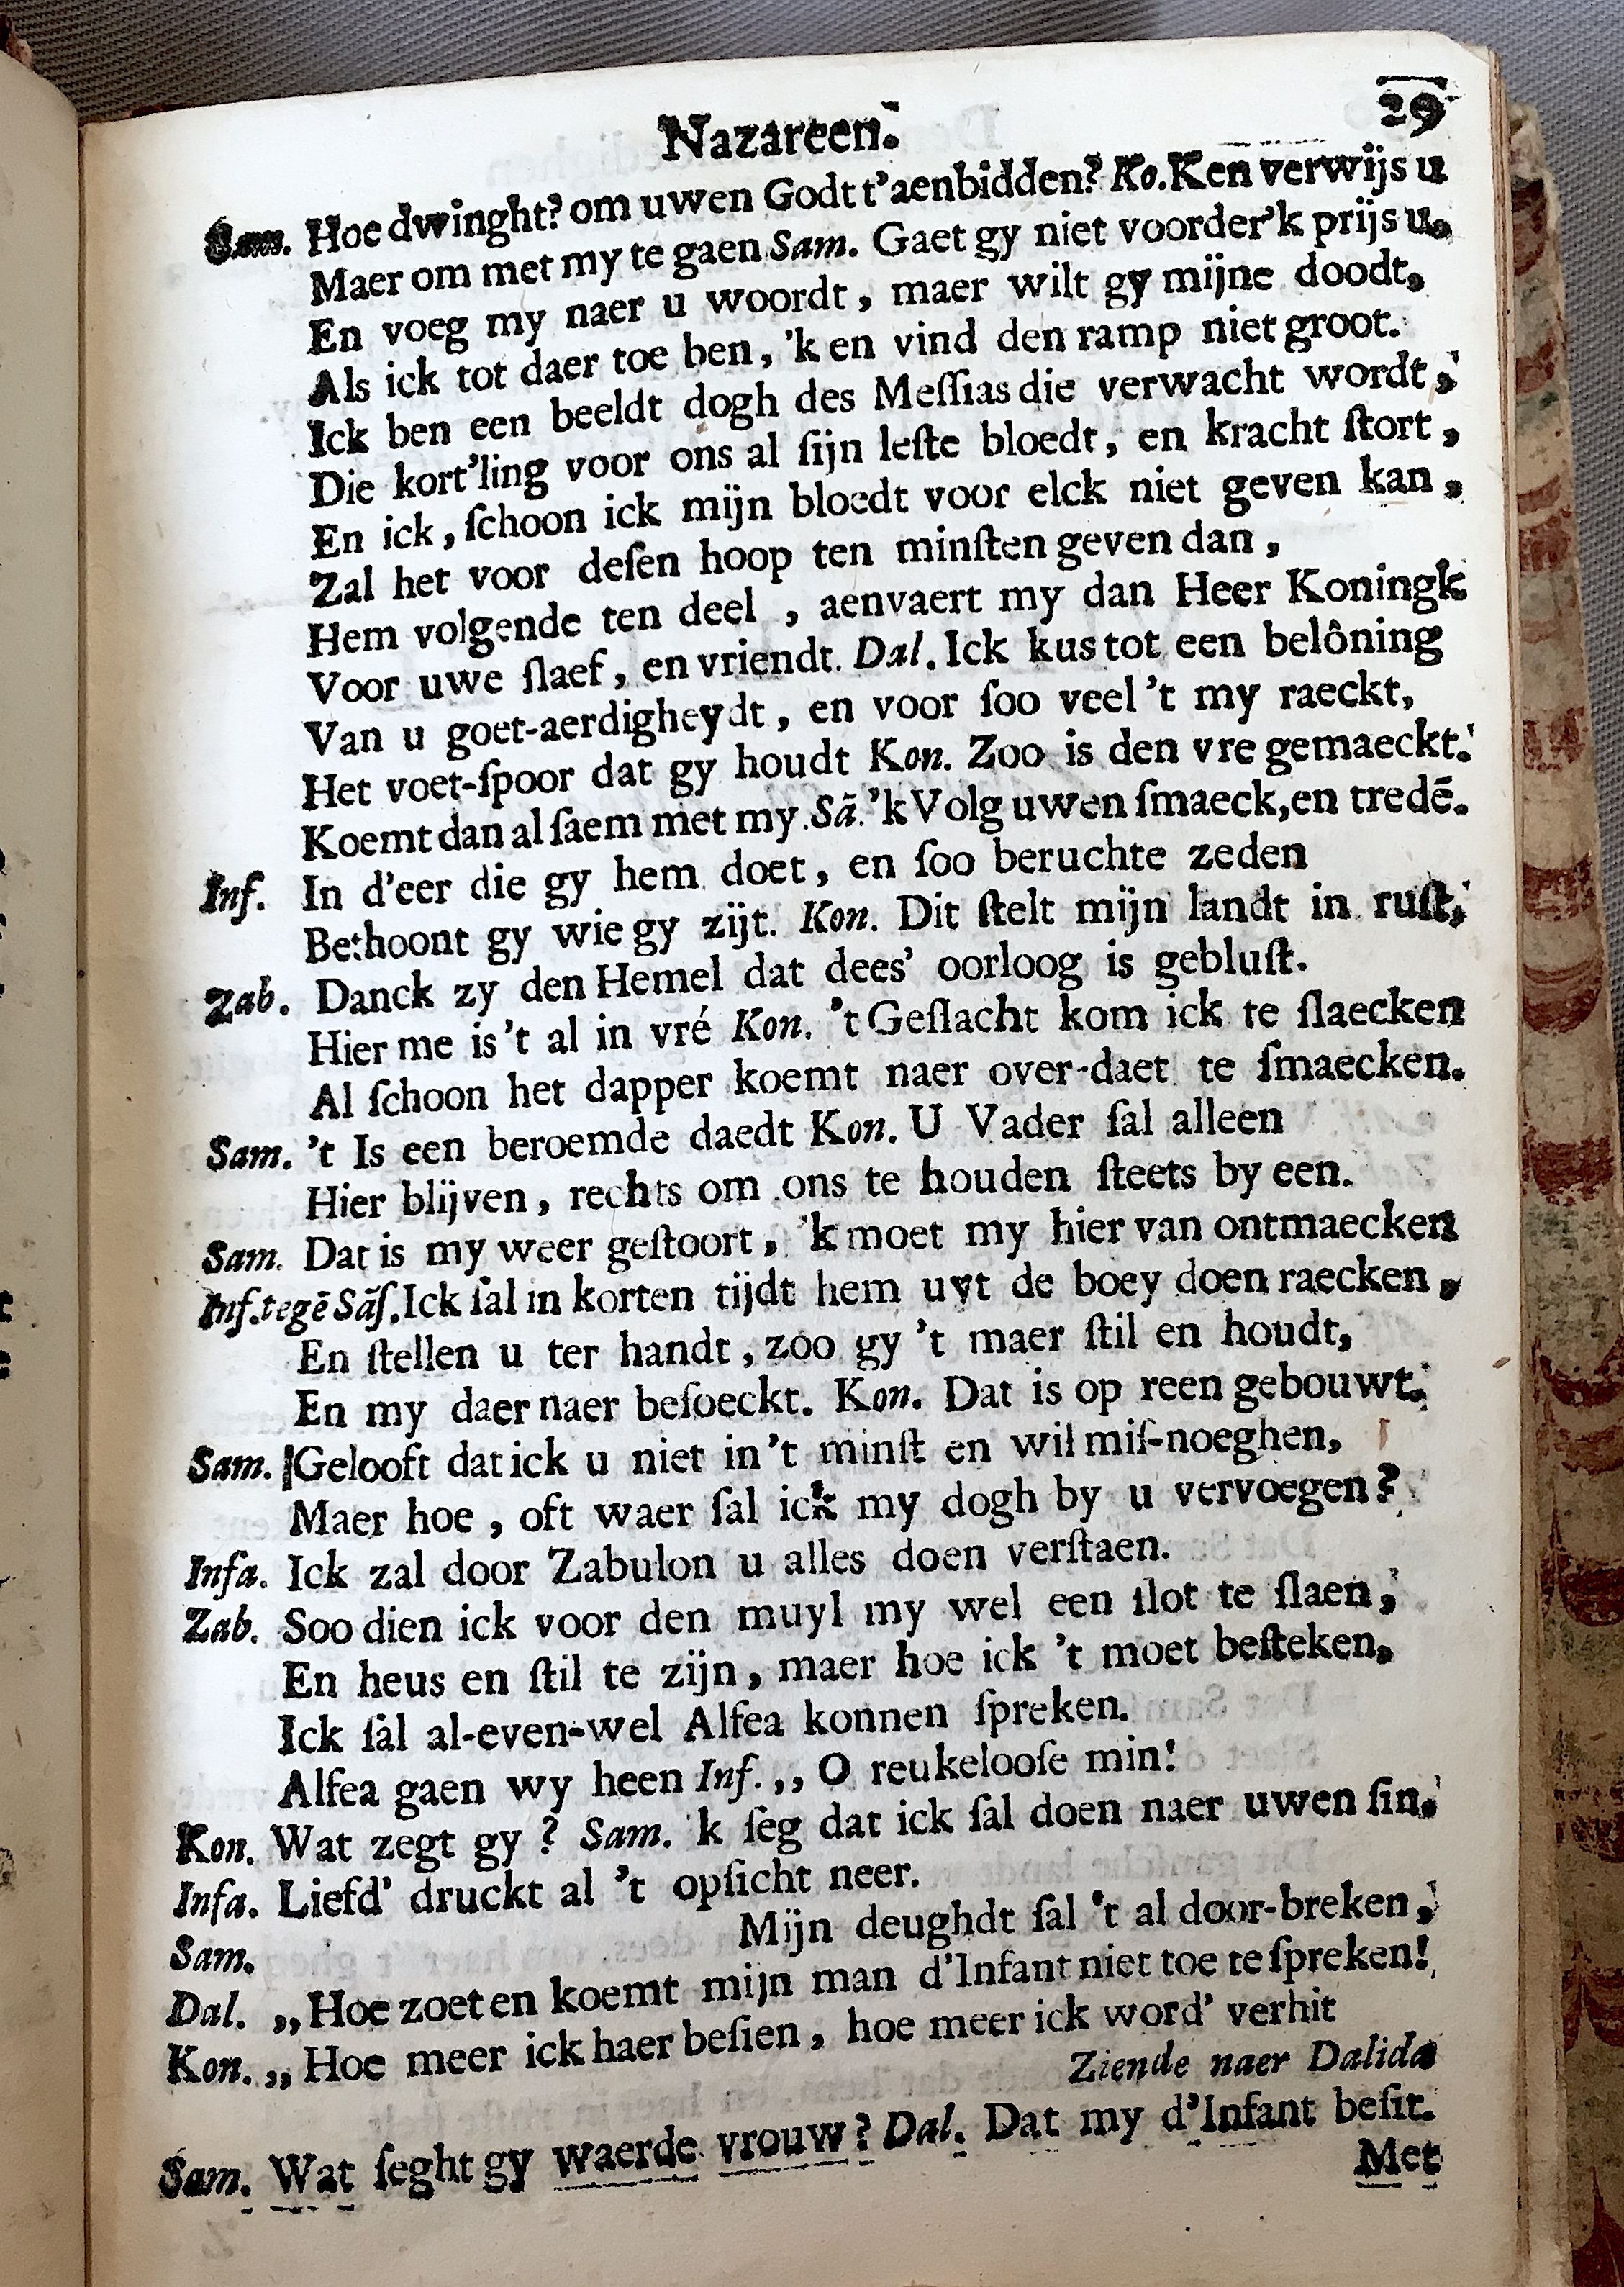 Nazareen. 29
Sam. Hoe dwinght? om uwen Godt t'aenbidden? Ko. Ken verwijs u
Maer om met my te gaen Sam. Gaet gy niet voorder'k prijs u.
En voeg my naer u woordt, maer wilt gy mijne doodt,
Als ick tot daer toe ben, 'k en vind den ramp niet groot.
Ick ben een beeldt dogh des Meſſias die verwacht wordt,
Die kort'ling voor ons al ſijn leſte bloedt, en kracht ſtort,
En ick, ſchoon ick mijn bloedt voor elck niet geven kan,
Zal het voor deſen hoop ten minſten geven dan,
Hem volgende ten deel, aenvaert my dan Heer Koningk
Voor uwe ſlaef, en vriendt. Dal. Ick kus tot een belôning
Van u goet-aerdigheydt, en voor ſoo veel 't my raeckt,
Het voet-ſpoor dat gy houdt Kon. Zoo is den vre gemaeckt.
Koemt dan al ſaem met my. Sā. 'k Volg uwen ſmaeck, en tredē.
Inf. In d'eer die gy hem doet, en ſoo beruchte zeden
Bethoont gy wie gy zijt. Kon. Dit ſtelt mijn landt in ruſt,
Zab. Danck zy den Hemel dat dees' oorloog is gebluſt.
Hier me is 't al in vré Kon. 't Geſlacht kom ick te ſlaecken
Al ſchoon het dapper koemt naer over-daet te ſmaecken.
Sam. 't Is een beroemde daedt Kon. U Vader ſal alleen
Hier blijven, rechts om ons te houden ſteets by een.
Sam. Dat is my weer geſtoort, 'k moet my hier van ontmaecken
Inf. tegē Sāſ. Ick ſal in korten tijdt hem uyt de boey doen raecken,
En ſtellen u ter handt, zoo gy 't maer ſtil en houdt,
En my daer naer beſoeckt. Kon. Dat is op reen gebouwt.
Sam. Gelooft dat ick u niet in 't minſt en wil miſ-noeghen,
Maer hoe, oft waer ſal ick my dogh by u vervoegen?
Infa. Ick zal door Zabulon u alles doen verſtaen.
Zab. Soo dien ick voor den muyl my wel een ſlot te ſlaen,
En heus en ſtil te zijn, maer hoe ick 't moet beſteken,
Ick ſal al-even-wel Alfea konnen ſpreken.
Alfea gaen wy heen Inf. ,, O reukelooſe min!
Kon. Wat zegt gy? Sam. 'k ſeg dat ick ſal doen naer uwen ſin.
Infa. Liefd' druckt al 't opſicht neer.
Sam. Mijn deughdt ſal 't al door-breken,
Dal. ,, Hoe zoet en koemt mijn man d'Infant niet toe te ſpreken!
Kon. ,, Hoe meer ick haer beſien, hoe meer ick word' verhit
Ziende naer Dalida
Sam. Wat ſeght gy waerde vrouw? Dal. Dat my d'Infant beſit.
Met